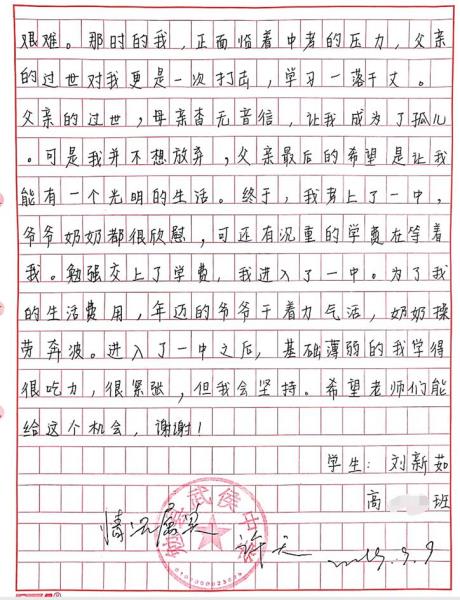 艰难。那时的我，正面临着中考的压力，父亲
的过世对我更是一次打击，学习一落千丈。
父亲的过世，母亲杳无音信，让我成为了孤儿
。可是我并不想放弃，父亲最后的希望是让我
能有一个光明的生活。终于，我考上了一中，
爷爷奶奶都很欣慰，可还有沉重的学费在等着
我。勉强交上了学费，我进入了一中。为了我
的生活费用，年迈的爷爷干着力气活，奶奶操
劳奔波。进入了一中之后，基础薄弱的我学得
很吃力，很紧张，但我会坚持。希望老师们能
给这个机会，谢谢！
学生：刘新茹
高 班
武侯中
情况属实